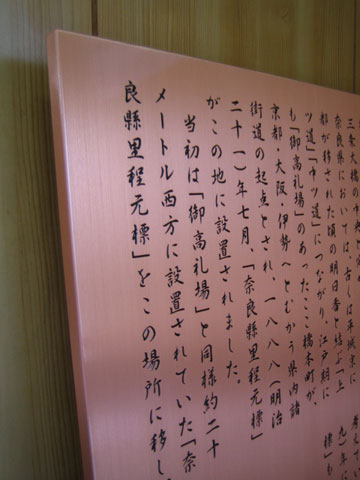 三条大橋の中央
奈良縣においては、古くは平城京に
都が移された頃の明日香と結ぶ「上
ツ道」「中ツ道」につながり、江戸期に
も「御高札場」のあったここ橋本町が、
京都・大阪・伊勢へとむかう県内諸
街道の起点とされ、一八八八(明治
二十一)年七月、「奈良縣里程元標」
がこの地に設置されました。
当初は「御高札場」と同様約二十
メートル西方に設置されていた「奈
良縣里程元標」をこの場所に移し、
考えてい
九)年に
標」も